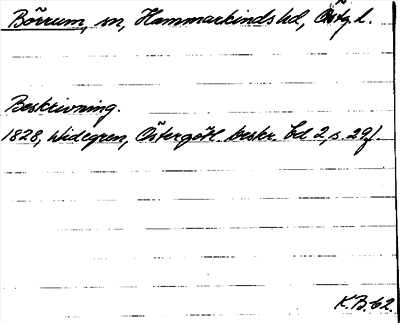 Börrum, sn, Hammarkinds hd, Östg. l.
Beskrivning.
1828, Widegren, Östergötl. beskr. bd 2, s. 29f.
K.B. 62.